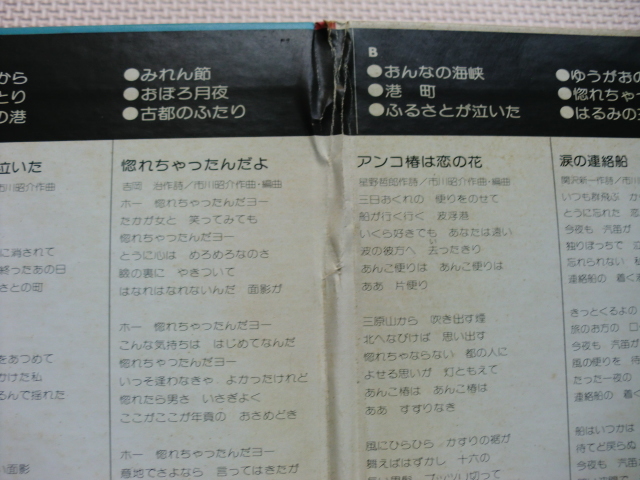 から
とり
の港
●みれん節
●おぼろ月夜
●古都のふたり
B
●おんなの海峡
●港 町
●ふるさとが泣いた
●ゆうがおの
●惚れちゃっ
●はるみの
泣いた
市川昭介作曲
に消されて
終ったあの日
さとの町
をあつめて
かけた私
るんで揺れた
い面影
惚れちゃったんだよ
吉岡 治作詩/市川昭介作曲・編曲
ホー 惚れちゃったんだヨー
たかが女と 笑ってみても
惚れちゃったんだヨー
とうに心は めろめろなのさ
瞼の裏に やきついて
はなれはなれないんだ 面影が
ホー 惚れちゃったんだヨー
こんな気持ちは はじめてなんだ
惚れちゃったんだヨー
いっそ逢わなきゃ よかったけれど
惚れたら男さ いさぎよく
ここがここが年貢の おさめどき
ホー 惚れちゃったんだヨー
意地でさよなら 言ってはきたが
アンコ椿は恋の花
星野哲郎作詩/市川昭介作曲・編曲
三日おくれの 便りをのせて
船が行く行く 波浮港
いくら好きでも あなたは遠い
波の彼方へ 去ったきり
あんこ便りは あんこ便りは
ああ 片便り
三原山から 吹き出す煙
北へなびけば 思い出す
惚れちゃならない 都の人に
よせる思いが 灯ともえて
あんこ椿は あんこ椿は
ああ すすりなき
風にひらひら かすりの裾が
舞えばはずかし 十六の
長い黒髪 プッツリ切って
涙の連絡船
関沢新一作詩/市川
いつも群飛ぶ か
とうに忘れた 恋
今夜も 汽笛が
独りぼっちで 泣
忘れられない 私
連絡船の 着く
きっとくるよの
旅のお方の 口
今夜も 汽笛が
風の便りを 待
たった一夜の
連絡船の 着く
船はいつかは
待てど戻らぬ
今夜も 汽笛